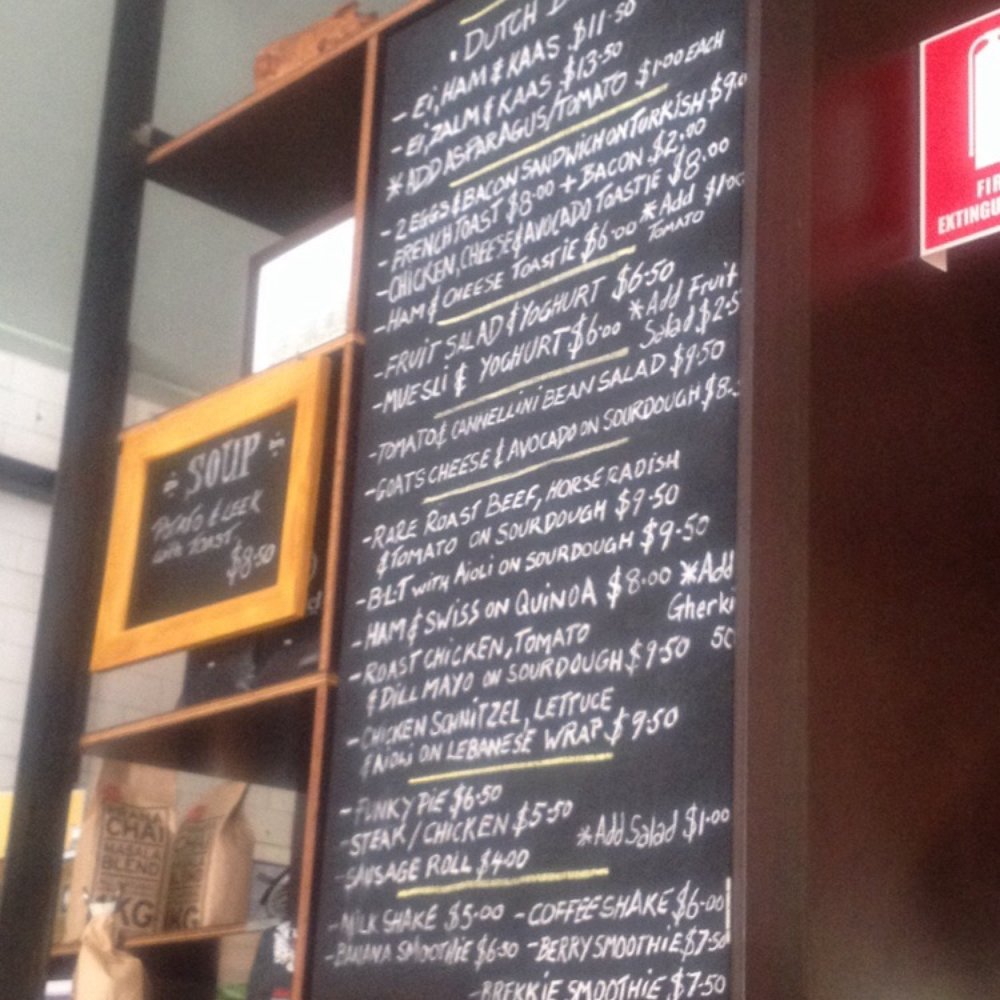 • DUTCH
- Ei, HAM & KAAS $11·50
- Ei, ZALM & KAAS $13·50
* ADD ASPARAGUS/TOMATO $1·00 EACH
- 2 EGGS & BACON SANDWICH ON TURKISH $9.0
- FRENCH TOAST $8·00 + BACON $2.00
- CHICKEN, CHEESE & AVOCADO TOASTIE $8.00
- HAM & CHEESE TOASTIE $6·00 *Add $1·00
TOMATO
- FRUIT SALAD & YOGHURT $6·50
- MUESLI & YOGHURT $6·00 *Add Fruit
Salad $2·5
- TOMATO & CANNELLINI BEAN SALAD $9·50
- GOATS CHEESE & AVOCADO ON SOURDOUGH $8.
- RARE ROAST BEEF, HORSERADISH
& TOMATO ON SOURDOUGH $9·50
- B·L·T with AIOLI ON SOURDOUGH $9·50
- HAM & SWISS ON QUINOA $8·00 *Add
Gherki
- ROAST CHICKEN, TOMATO
50
& DILL MAYO ON SOURDOUGH $9·50
- CHICKEN SCHNITZEL, LETTUCE
& AIOLI ON LEBANESE WRAP. $9·50
- FUNKY PIE $6·50
- STEAK / CHICKEN $5·50
*Add Salad $1·00
- SAUSAGE ROLL $4·00
- MILK SHAKE $5·00 - COFFEE SHAKE $6·00
- BANANA SMOOTHIE $6·50 - BERRY SMOOTHIE $7·50
- BREKKIE SMOOTHIE $7·50
SOUP
POTATO & LEEK
with TOAST
$8·50
FIR
EXTINGU
CHAI
MASALA
BLEND
KG
KG